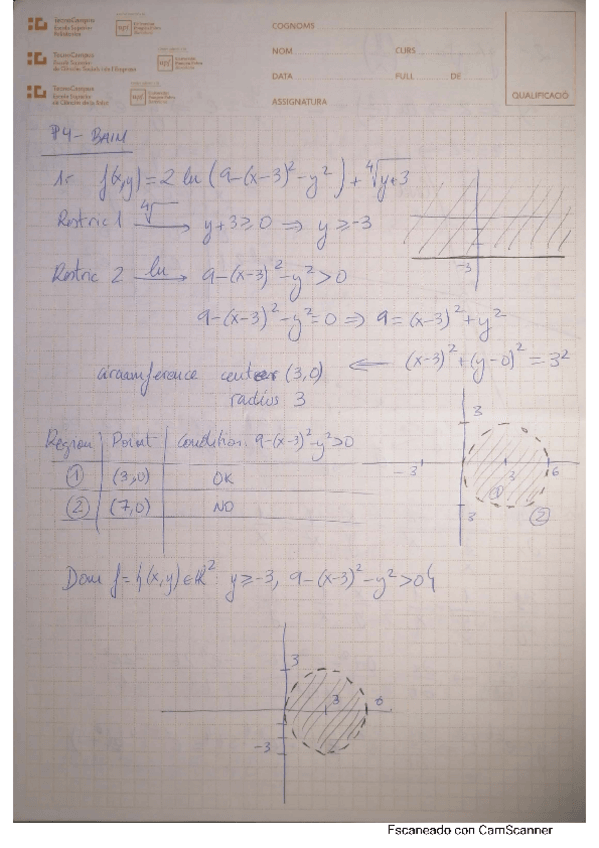 TecnoCampus
Escola Superior
Politècnica
upf.
TecnoCampus
Escola Superior
de Ciències Socials i de l'Empresa
upf.
TecnoCampus
Escola Superior
de Ciències de la Salut
upf.
COGNOMS
NOM CURS
DATA FULL DE
ASSIGNATURA
QUALIFICACIÓ
P4 - BAIM
1.- f(x,y) = 2 ln (9-(x-3)²-y²) + ∜y+3
Restric 1 ∜ → y+3 ≥ 0 ⇒ y ≥ -3
-3
Restric 2 ln → 9-(x-3)²-y² > 0
9-(x-3)²-y² = 0 ⇒ 9 = (x-3)² + y²
circumference center (3,0) ← (x-3)² + (y-0)² = 3²
radius 3
Region Point Condition: 9-(x-3)²-y² > 0
① (3,0) OK
② (7,0) NO
3
-3 3 6
① ②
3
Dom f = {(x,y) ∈ ℝ²: y ≥ -3, 9-(x-3)²-y² > 0}
3
3 6
-3
Escaneado con CamScanner